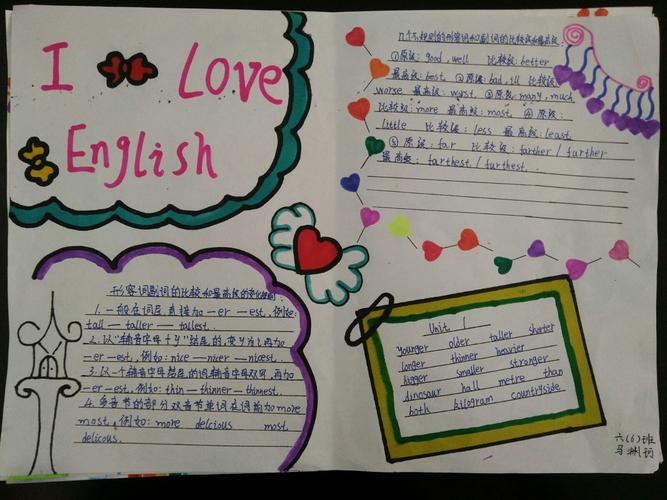 I Love
English
形容词副词的比较和最高级的变化规则:
1. 一般在词尾直接加-er -est, 例如:
tall — taller — tallest.
2. 以"辅音字母+y"结尾的,变y为i,再加
-er -est, 例如: nice — nicer — nicest.
3. 以一个辅音字母结尾的词辅音字母双写,再加
-er -est. 例如: thin — thinner — thinnest.
4. 多音节的部分双音节单词在词前加more
most, 例如: more delcious most
delicous.
几个不规则的形容词和副词的比较级和最高级:
①原级: good, well 比较级: better
最高级: best ②原级: bad, ill 比较级:
worse 最高级: worst ③原级: many, much
比较级: more 最高级: most ④原级:
little 比较级: less 最高级: least
⑤原级: far 比较级: farther / further
最高级: farthest / furthest.
Unit 1
younger older taller shorter
longer thinner heavier
bigger smaller stronger
dinosaur hall metre than
both kilogram countryside
六(6)班